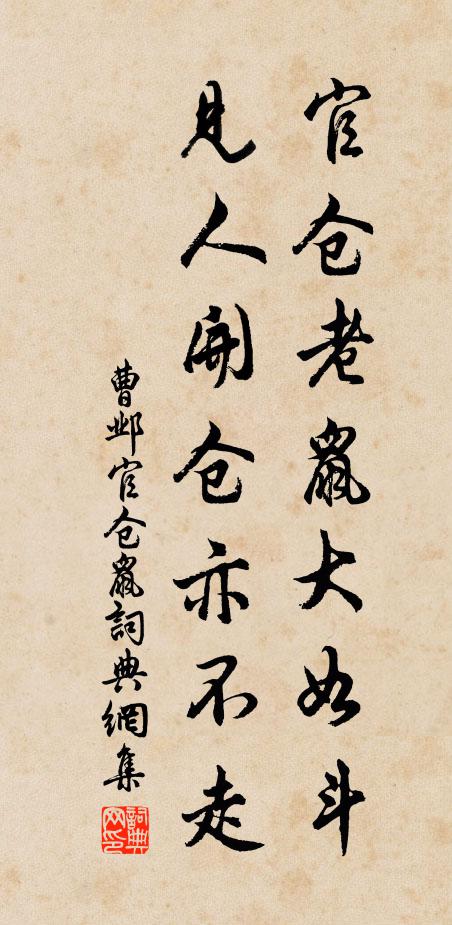 官仓老鼠大如斗
见人开仓亦不走
曹邺官仓鼠詞典網集
詞典网印